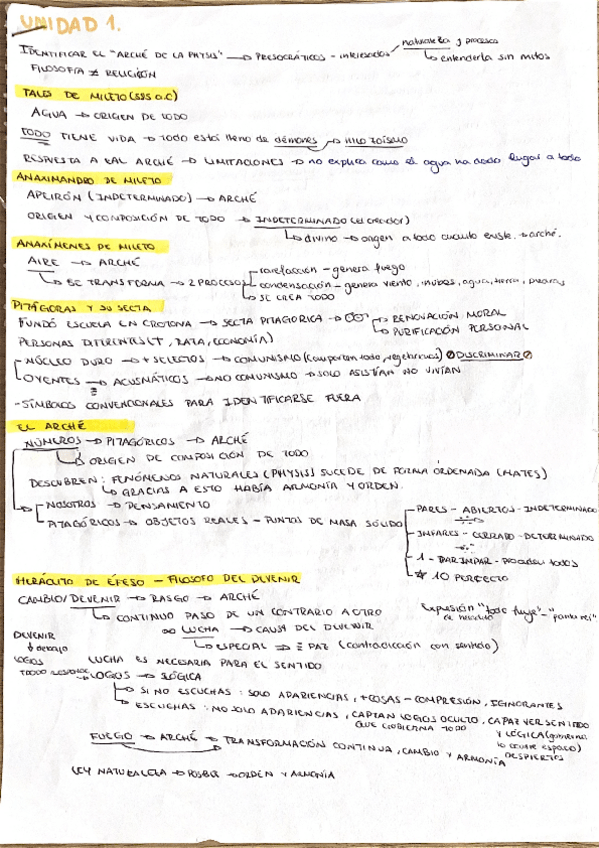 UNIDAD 1.
IDENTIFICAR EL "ARCHÉ DE LA PHYSIS" → PRESOCRÁTICOS - interesados naturaleza y procesos
↳ entenderla sin mitos
FILOSOFÍA ≠ RELIGIÓN
TALES DE MILETO (585 a.C)
AGUA → ORIGEN DE TODO
TODO TIENE VIDA → Todo está lleno de démones → HILOZOÍSMO
RESPUESTA A TAL ARCHÉ → LIMITACIONES → no explica como el agua ha dado lugar a todo
ANAXIMANDRO DE MILETO
APEIRÓN (INDETERMINADO) → ARCHÉ
ORIGEN Y COMPOSICIÓN DE TODO → INDETERMINADO (es creador)
↳ divino → origen a todo cuanto existe. → arché.
ANAXÍMENES DE MILETO
AIRE → ARCHÉ
↳ SE TRANSFORMA → 2 PROCESOS
rarefacción - genera fuego
condensación - genera viento, nubes, agua, tierra, piedras
SE CREA TODO
PITÁGORAS Y SU SECTA
FUNDÓ ESCUELA EN CROTONA → SECTA PITAGÓRICA →
RENOVACIÓN MORAL
PURIFICACIÓN PERSONAL
PERSONAS DIFERENTES (, RAZA, ECONOMÍA)
NÚCLEO DURO → + SELECTOS → COMUNISMO (compartían todo, vegetarianos) DISCRIMINAR
OYENTES → ACUSMÁTICOS → NO COMUNISMO → SOLO ASISTÍAN NO VIVÍAN
- SÍMBOLOS CONVENCIONALES PARA IDENTIFICARSE FUERA
EL ARCHÉ
NÚMEROS → PITAGÓRICOS → ARCHÉ
↳ ORIGEN DE COMPOSICIÓN DE TODO
DESCUBREN: FENÓMENOS NATURALES (PHYSIS) SUCEDE DE FORMA ORDENADA (MATES)
↳ GRACIAS A ESTO HABÍA ARMONÍA Y ORDEN.
NOSOTROS → PENSAMIENTO
PITAGÓRICOS → OBJETOS REALES - PUNTOS DE MASA SÓLIDO
PARES - ABIERTOS - INDETERMINADO
IMPARES - CERRADO - DETERMINADO
1 - PARIMPAR - proceden todos
★ 10 PERFECTO
HERÁCLITO DE ÉFESO - FILOSOFO DEL DEVENIR
CAMBIO/DEVENIR → RASGO → ARCHÉ
↳ CONTINUO PASO DE UN CONTRARIO A OTRO
Expresión "todo fluye" - "panta rei"
de heraclito
∞ LUCHA → CAUSA DEL DEVENIR
↳ ESPECIAL → PAZ (contradicción con sentido)
DEVENIR
↓ debajo
LOGOS
LUCHA ES NECESARIA PARA EL SENTIDO
LOGOS → LÓGICA
↳ SI NO ESCUCHAS: SOLO APARIENCIAS, + COSAS - COMPRESIÓN, IGNORANTES
↳ ESCUCHAS: NO SOLO APARIENCIAS, CAPTAN LOGOS OCULTO, CAPAZ VER SENTIDO
QUE GOBIERNA TODO
Y LÓGICA (gobierna
DESPIERTOS
FUEGO → ARCHÉ → TRANSFORMACIÓN CONTINUA, CAMBIO Y ARMONÍA
LEY NATURALEZA → POSIBLE → ORDEN Y ARMONÍA